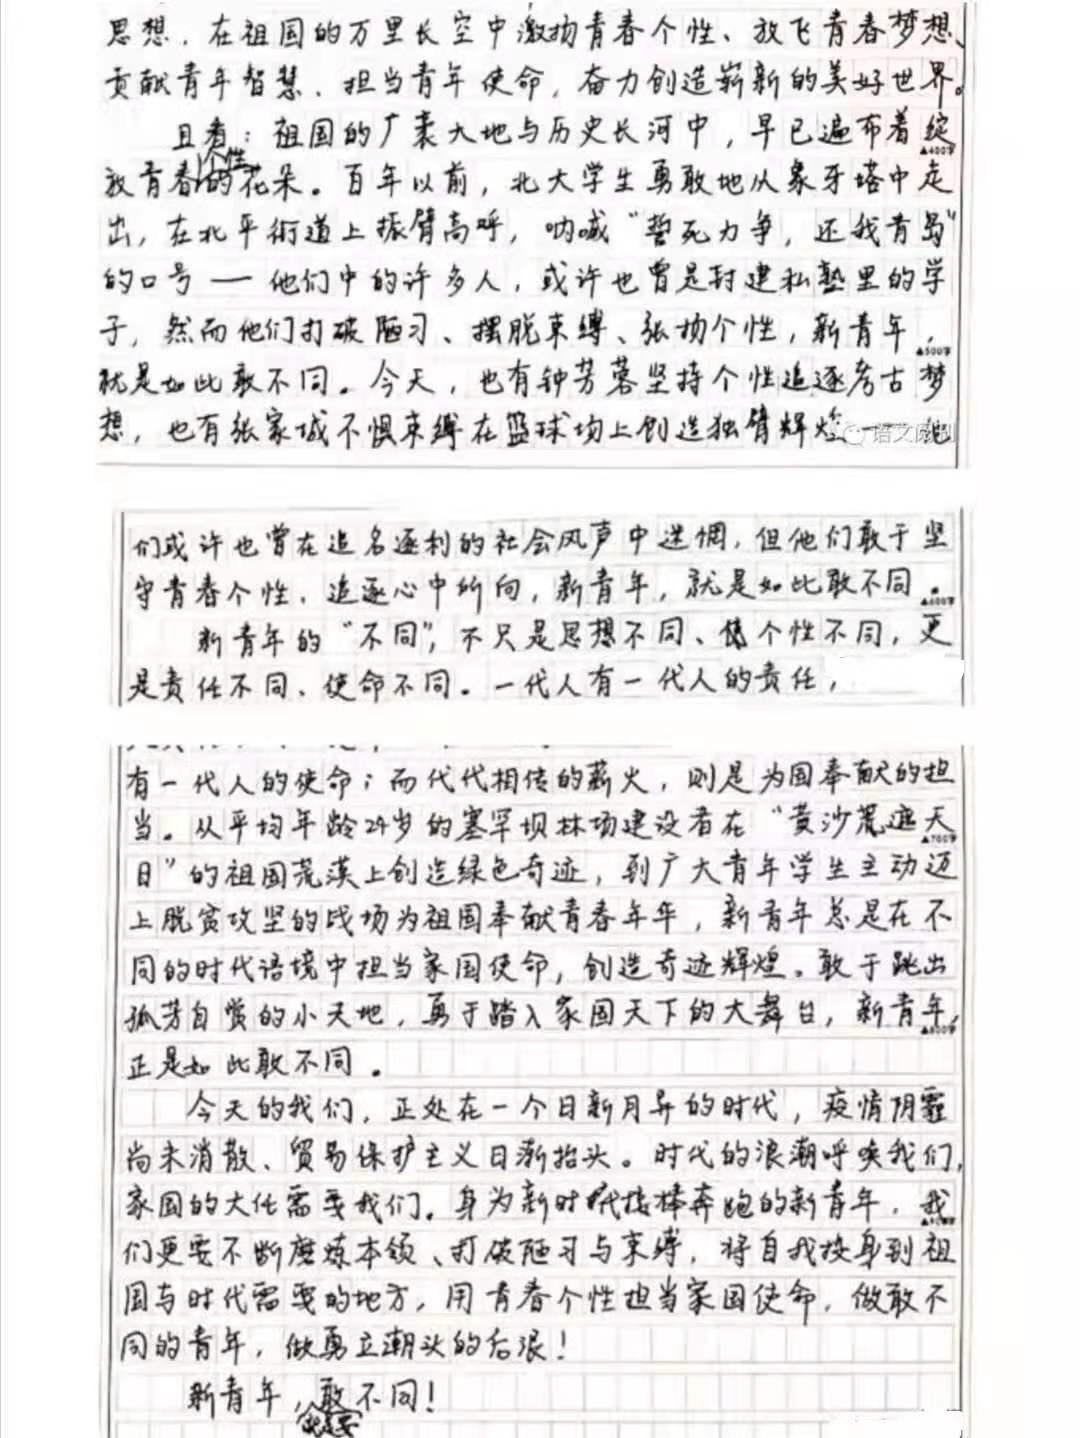 思想，在祖国的万里长空中激扬青春个性、放飞青春梦想、
贡献青年智慧、担当青年使命，奋力创造崭新的美好世界。
且看：祖国的广袤大地与历史长河中，早已遍布着绽
▲400字
放青春个性的花朵。百年以前，北大学生勇敢地从象牙塔中走
出，在北平街道上振臂高呼，呐喊“誓死力争，还我青岛”
的口号——他们中的许多人，或许也曾是封建私塾里的学
子，然而他们打破陋习、摆脱束缚、张扬个性，新青年，
▲500字
就是如此敢不同。今天，也有钟芳蓉坚持个性追逐考古梦
想，也有张家城不惧束缚在篮球场上创造独臂辉煌——他
们或许也曾在追名逐利的社会风声中迷惘，但他们敢于坚
守青春个性、追逐心中所向，新青年，就是如此敢不同。
▲600字
新青年的“不同”，不只是思想不同、个性不同，更
是责任不同、使命不同。一代人有一代人的责任，
有一代人的使命；而代代相传的薪火，则是为国奉献的担
当。从平均年龄24岁的塞罕坝林场建设者在“黄沙荒遮天
▲700字
日”的祖国荒漠上创造绿色奇迹，到广大青年学生主动迈
上脱贫攻坚的战场为祖国奉献青春年华，新青年总是在不
同的时代语境中担当家国使命，创造奇迹辉煌。敢于跳出
孤芳自赏的小天地，勇于踏入家国天下的大舞台，新青年，
▲800字
正是如此敢不同。
今天的我们，正处在一个日新月异的时代，疫情阴霾
尚未消散、贸易保护主义日渐抬头。时代的浪潮呼唤我们，
家国的大任需要我们。身为新时代接棒奔跑的新青年，我
们更要不断磨炼本领、打破陋习与束缚，将自我投身到祖
国与时代需要的地方，用青春个性担当家国使命，做敢不
同的青年，做勇立潮头的后浪！
新青年，就是要敢不同！